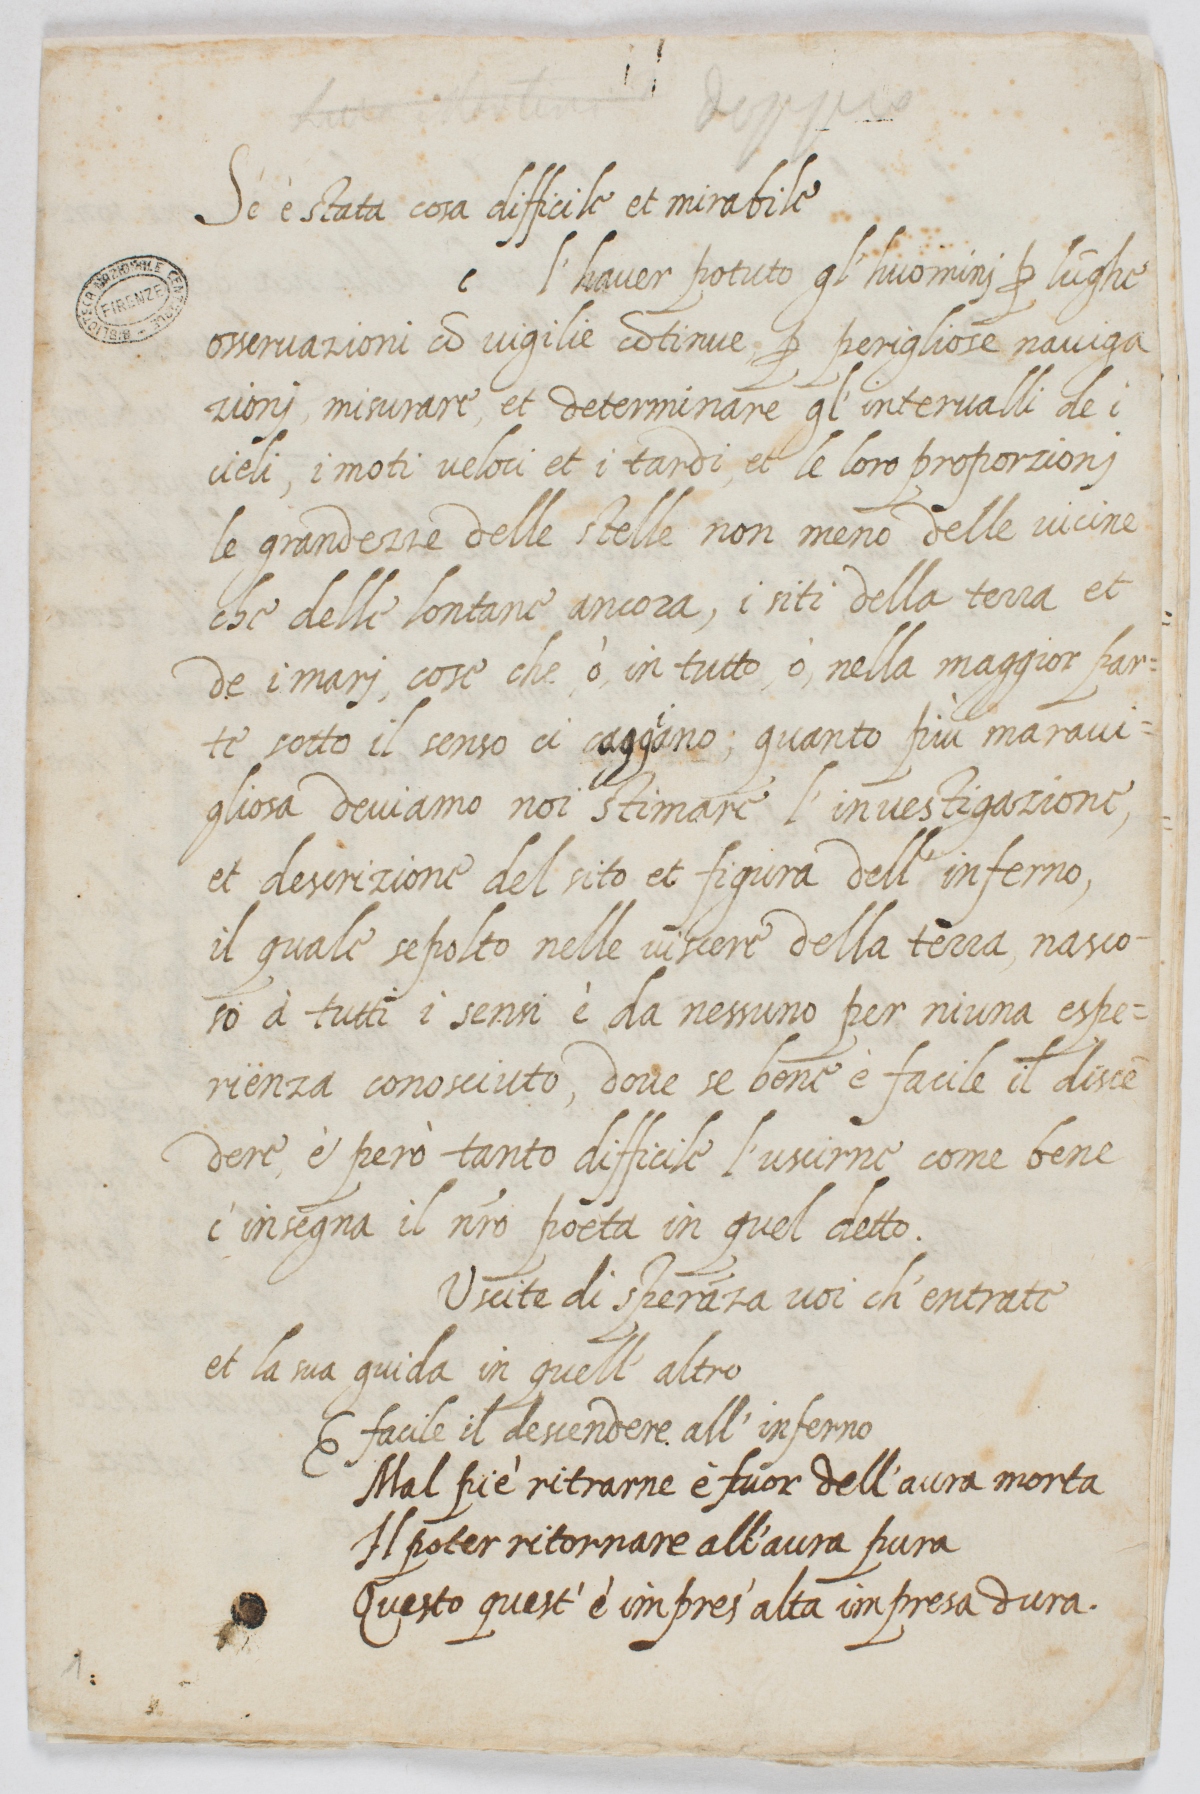 doppio
Se è stata cosa difficile et mirabile
l'haver potuto gl'huominj p̱ lūghe
osservazioni cō vigilie cōtinue, p̱ perigliose naviga
zionj, misurare, et determinare gl'intervalli de i
cieli, i moti veloci et i tardi, et le loro proporzionj
le grandezze delle stelle non meno delle vicine
che delle lontane ancora, i siti della terra et
de i marj, cose che, ò, in tutto, ò, nella maggior par=
te sotto il senso ci caggiano; quanto più maravi=
gliosa deviamo noi stimare l'investigazione,
et descrizione del sito et figura dell'inferno,
il quale sepolto nelle viscere della terra, nasco-
so à tutti i sensi è da nessuno per niuna espe=
rienza conosciuto, dove se bene è facile il discē
dere, è però tanto difficile l'uscirne come bene
c'insegna il nr̄o poeta in quel detto.
Uscite di sperāza voi ch'entrate
et la sua guida in quell'altro
È facile il descendere all'inferno
Mal piè ritrarne è fuor dell'aura morta
Il poter ritornare all'aura pura
Questo quest'è impres'alta impresa dura.
BIBLIOTECA NAZIONALE CENTRALE
FIRENZE
1.